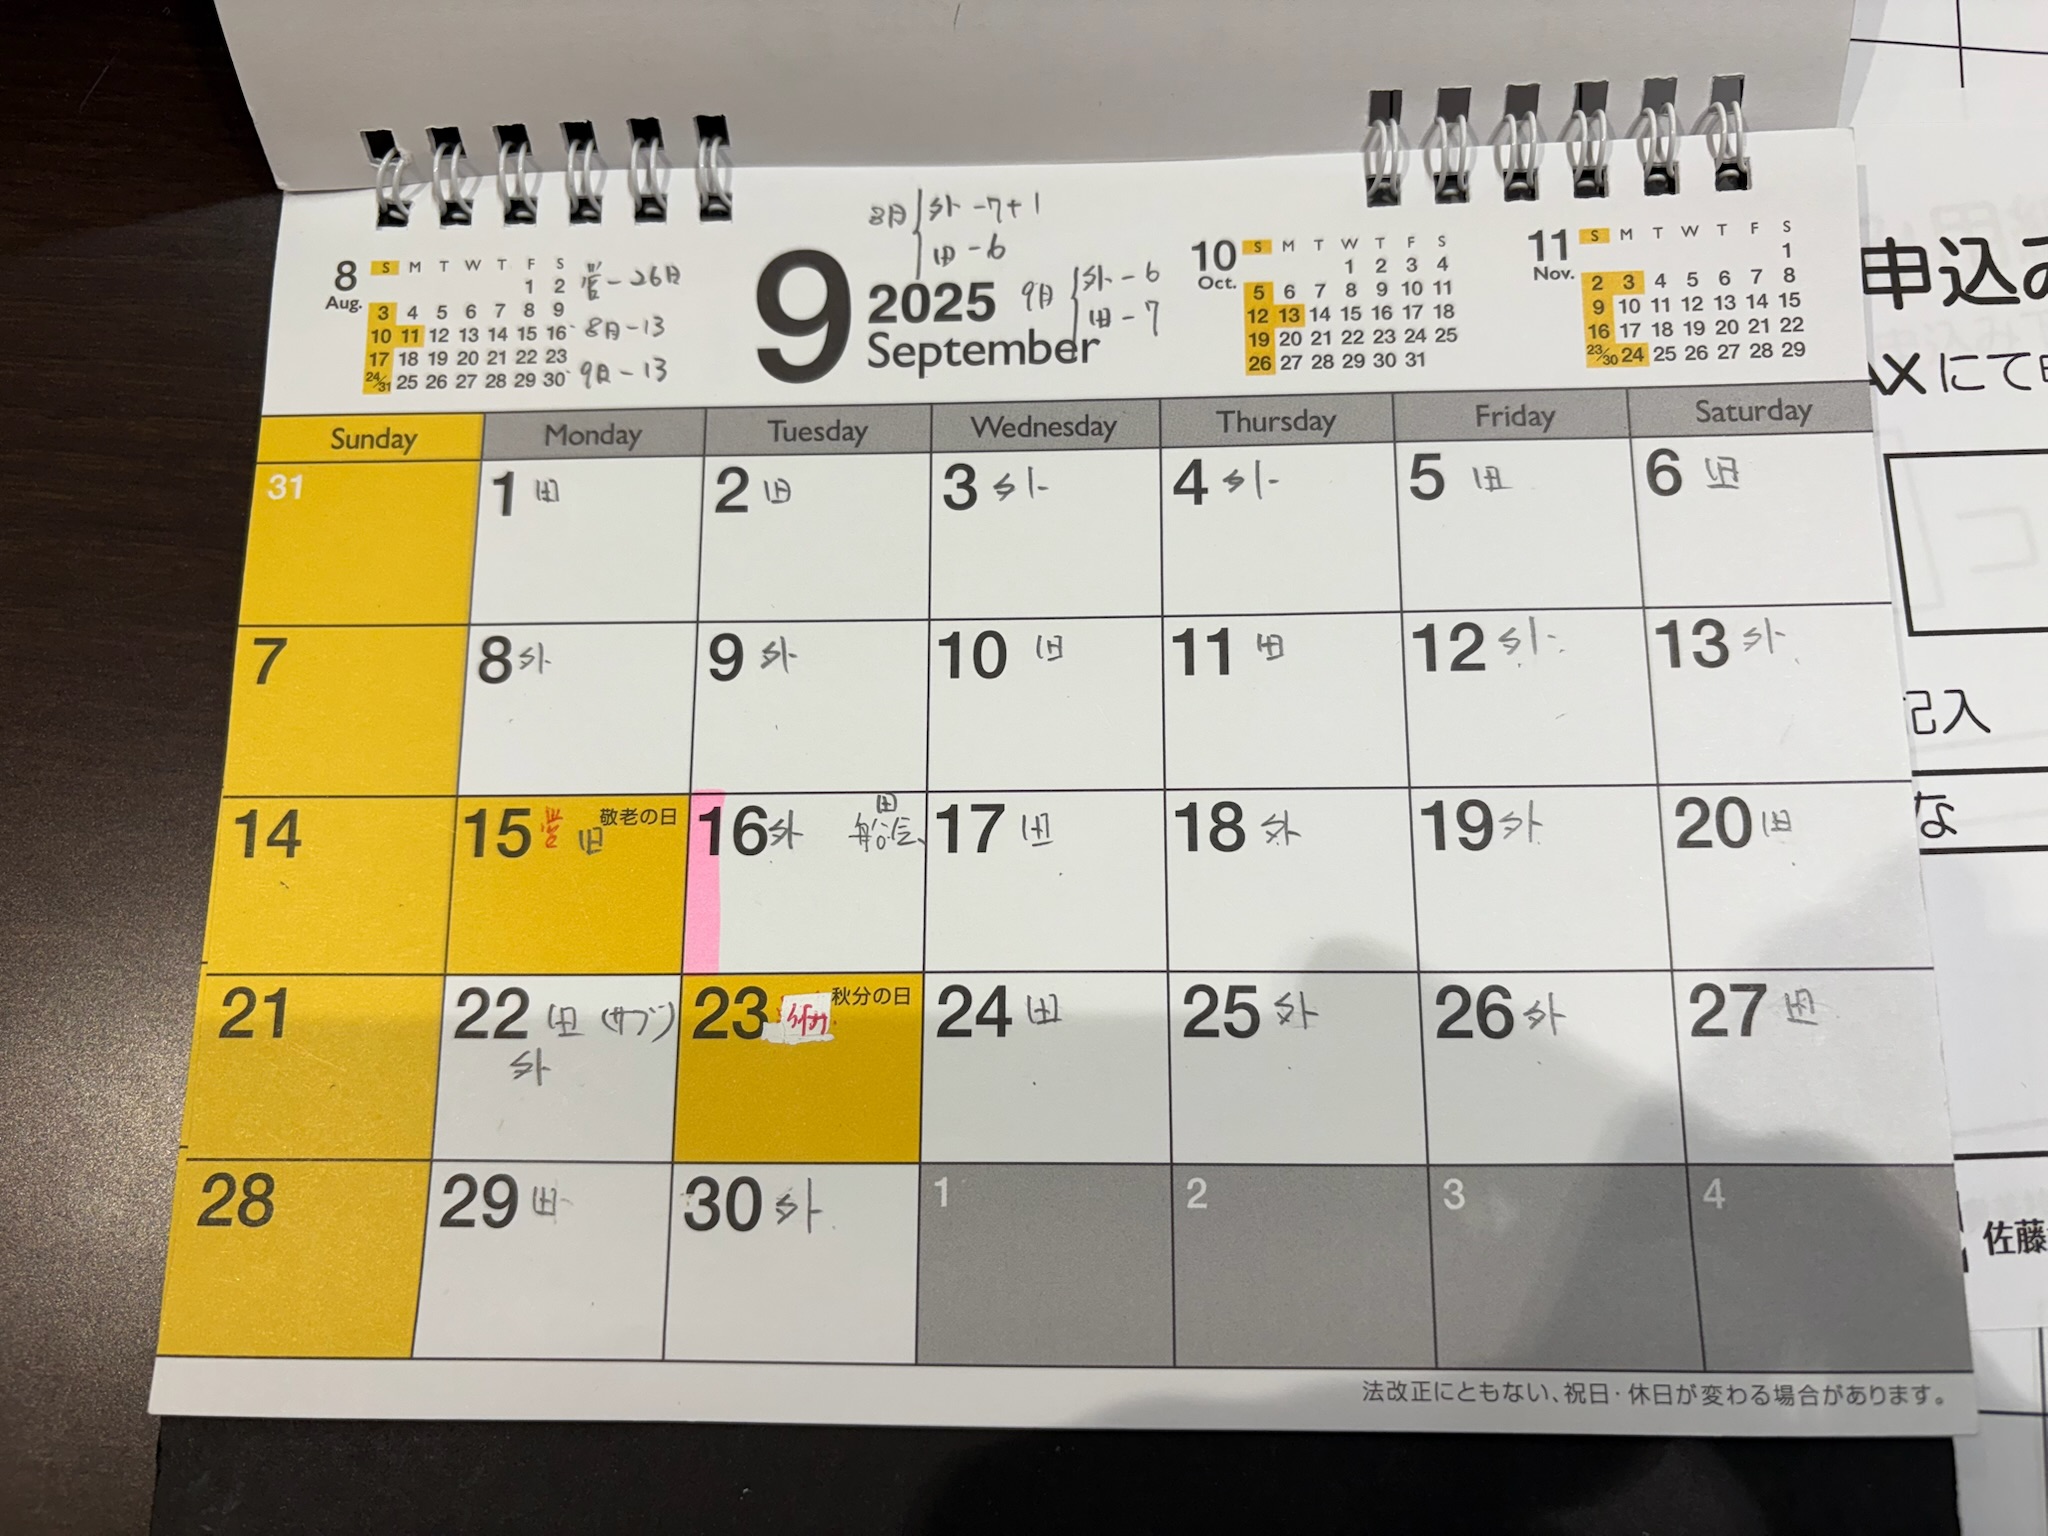 8月 外-7+1
田-6
9月 外-6
田-7
営-26日
8月-13
9月-13
8
Aug.
S M T W T F S
1 2
3 4 5 6 7 8 9
10 11 12 13 14 15 16
17 18 19 20 21 22 23
24/31 25 26 27 28 29 30
9
2025
September
10
Oct.
S M T W T F S
1 2 3 4
5 6 7 8 9 10 11
12 13 14 15 16 17 18
19 20 21 22 23 24 25
26 27 28 29 30 31
11
Nov.
S M T W T F S
1
2 3 4 5 6 7 8
9 10 11 12 13 14 15
16 17 18 19 20 21 22
23/30 24 25 26 27 28 29
Sunday Monday Tuesday Wednesday Thursday Friday Saturday
31 1 田 2 田 3 外 4 外 5 田 6 田
7 8 外 9 外 10 田 11 田 12 外 13 外
14 15 営 田 敬老の日 16 外 田 17 田 18 外 19 外 20 田
21 22 田 (サブ) 23 秋分の日 24 田 25 外 26 外 27 田
外
28 29 田 30 外 1 2 3 4
法改正にともない、祝日・休日が変わる場合があります。
申込み
AXにて
記入
な
佐藤